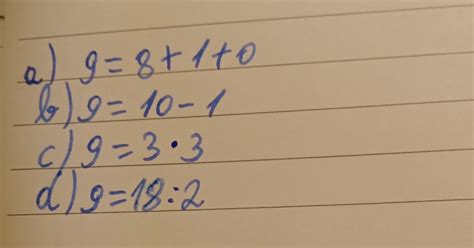 a) 9=8+1+0
b) 9=10-1
c) 9=3·3
d) 9=18:2